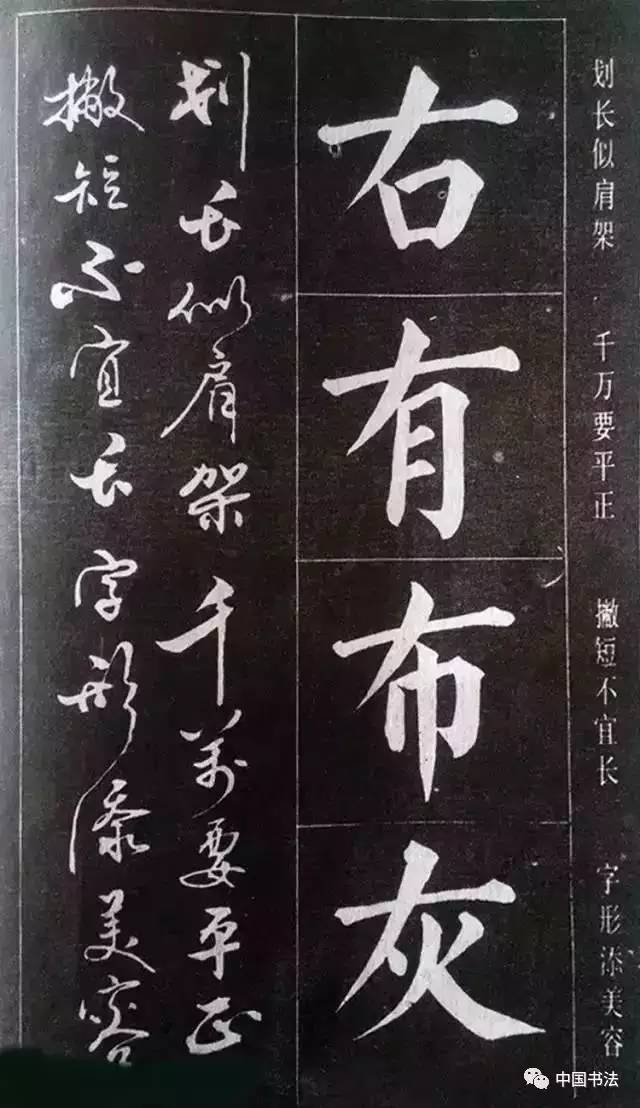 划长似肩架 千万要平正 撇短不宜长 字形添美容
右
有
布
灰
划长似肩架千萬要平正
撇短不宜长字形添美容
中国书法